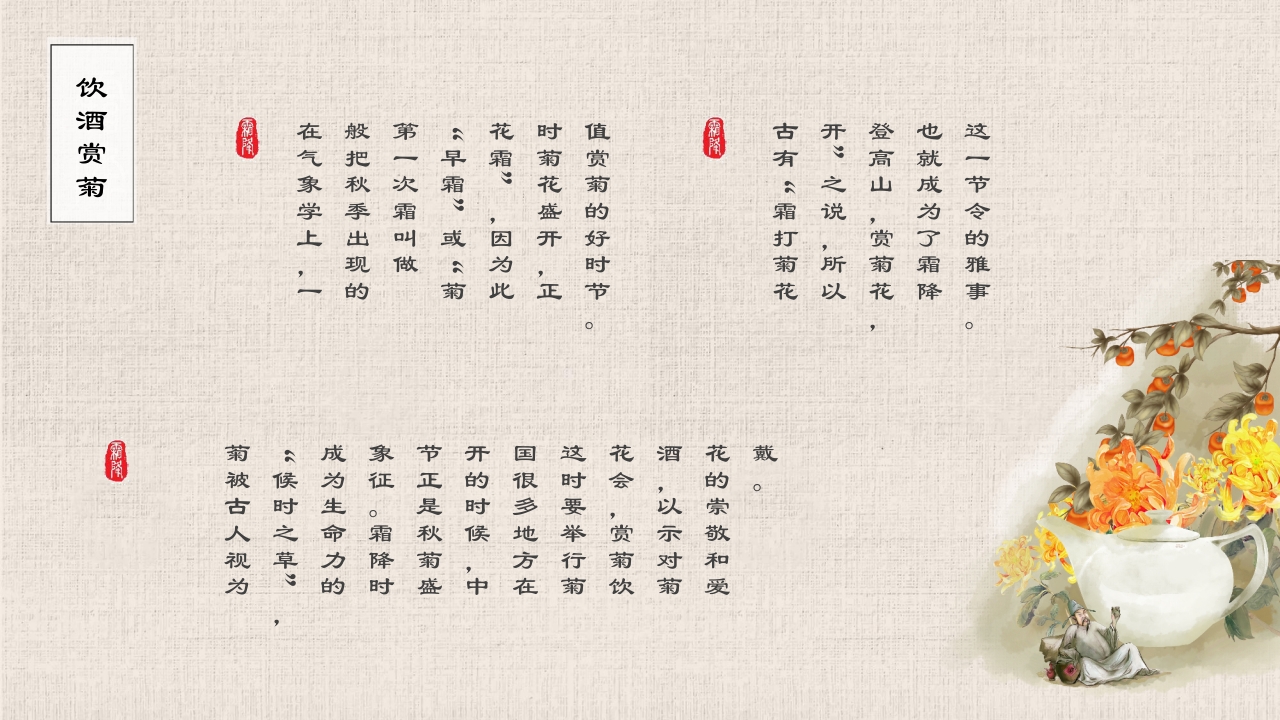 饮酒赏菊
霜降
在气象学上，一
般把秋季出现的
第一次霜叫做
“早霜”或“菊
花霜”，因为此
时菊花盛开，正
值赏菊的好时节。
霜降
古有“霜打菊花
开”之说，所以
登高山，赏菊花，
也就成为了霜降
这一节令的雅事。
霜降
菊被古人视为
“候时之草”，
成为生命力的
象征。霜降时
节正是秋菊盛
开的时候，中
国很多地方在
这时要举行菊
花会，赏菊饮
酒，以示对菊
花的崇敬和爱
戴。